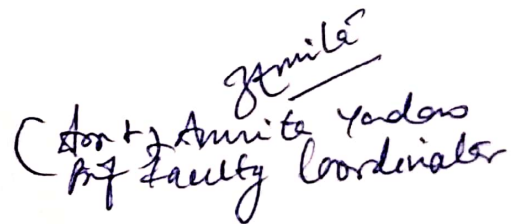 Amrita
(Amrita Yadav
Prof Faculty Coordinator